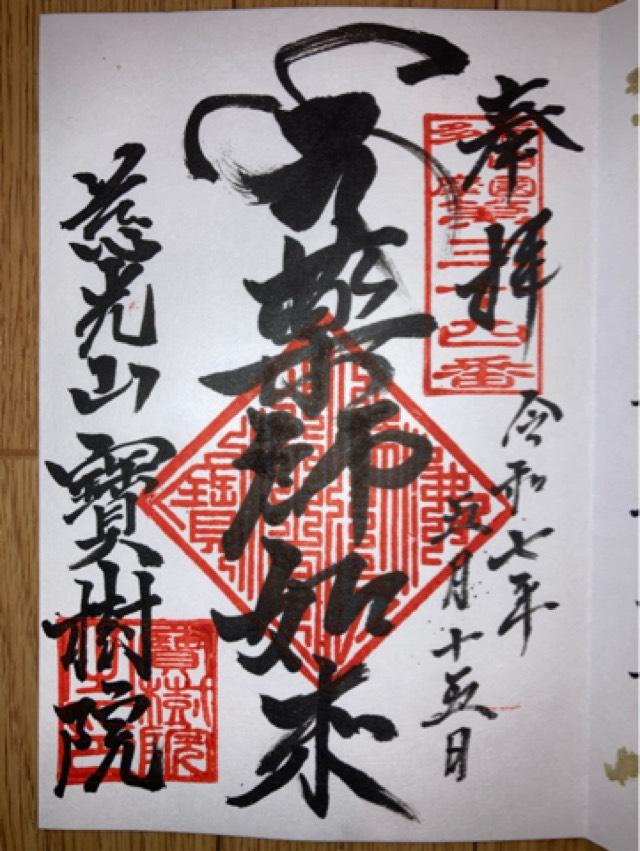 奉拝
多摩
四國
第三十四番
令和七年
五月十五日
薬師如来
慈光山
寶樹院
寶樹院